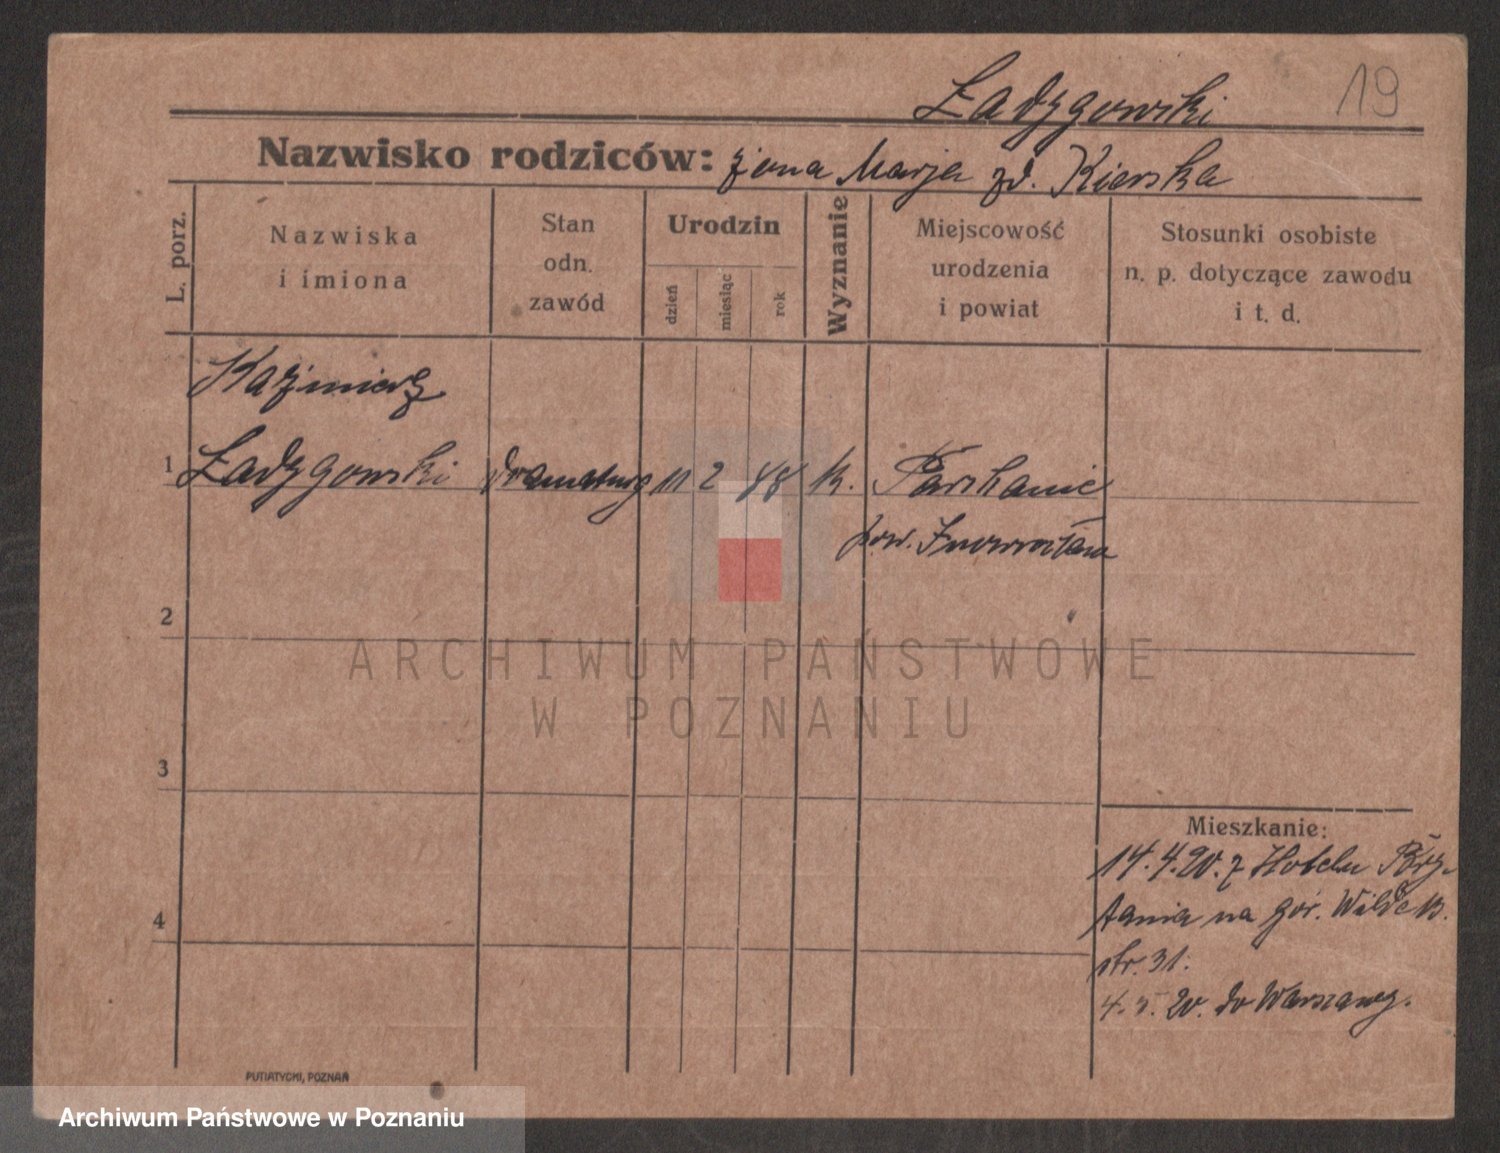 Ładzgowski
19
Nazwisko rodziców: żona Marja zd. Kierska
L. porz.
Nazwiska
i imiona
Stan
odn.
zawód
Urodzin
dzień
miesiąc
rok
Wyznanie
Miejscowość
urodzenia
i powiat
Stosunki osobiste
n. p. dotyczące zawodu
i t. d.
Kazimierz
1 Ładzgowski dramaturg 2 88 k. Parchanie
pow. Inowrocław
2
ARCHIWUM PAŃSTWOWE
W POZNANIU
3
Mieszkanie:
14.4.20. z Hotelu Bry-
4
tania na gór. Wilde
str. 31.
20. do Warszawy.
PUTIATYCKI, POZNAŃ
Archiwum Państwowe w Poznaniu